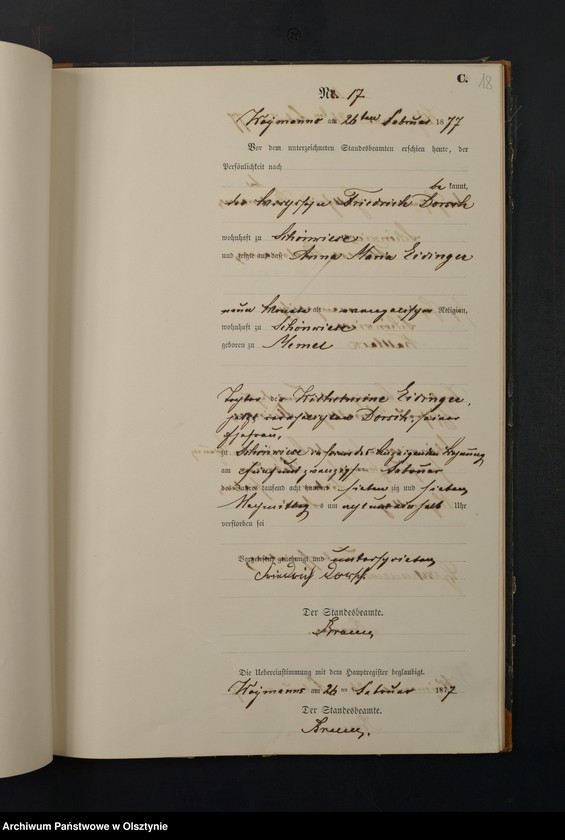 C.
18
Nr. 17
am 26ten Februar 1877
Vor dem unterzeichneten Standesbeamten erschien heute, der
Persönlichkeit nach
be kannt,
der Friedrich Dorsch
wohnhaft zu Schönwiese
und zeigte an, daß Anna Maria Eidinger
neun Monate alt evangelischer Religion,
wohnhaft zu Schönwiese
geboren zu Memel
Tochter der Wilhelmine Eidinger,
jetzt verehelichten Dorsch, seiner
Ehefrau,
zu Schönwiese in des Anzeigenden Wohnung
am fünf und zwanzigsten Februar
des Jahres tausend acht hundert sieben zig und sieben
Nachmittag s um acht und ein halb Uhr
verstorben sei
Vorgelesen, genehmigt und unterschrieben
Friedrich Dorsch
Der Standesbeamte.
Die Uebereinstimmung mit dem Hauptregister beglaubigt.
am 26 ten Februar 1877
Der Standesbeamte.
Archiwum Państwowe w Olsztynie